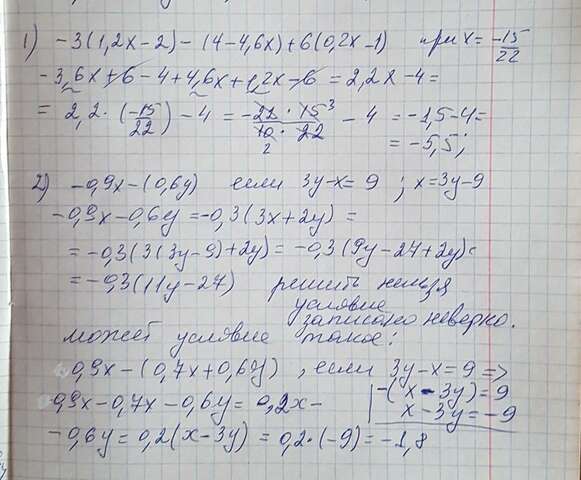 1) -3(1,2x-2) - (4-4,6x) + 6(0,2x-1) при x = -15/22
-3,6x + 6 - 4 + 4,6x + 1,2x - 6 = 2,2x - 4 =
= 2,2 · (-15/22) - 4 = -22 · 15 3/10 · 22 2 - 4 = -1,5 - 4 =
= -5,5;
2) -0,9x - (0,6y) если 3y - x = 9 ; x = 3y - 9
-0,9x - 0,6y = -0,3(3x + 2y) =
= -0,3(3(3y - 9) + 2y) = -0,3(9y - 27 + 2y) =
= -0,3(11y - 27) решить нельзя
условие
записано неверно.
может условие такое:
0,9x - (0,7x + 0,6y) , если 3y - x = 9 =>
0,9x - 0,7x - 0,6y = 0,2x - -(x - 3y) = 9
x - 3y = -9
-0,6y = 0,2(x - 3y) = 0,2 · (-9) = -1,8